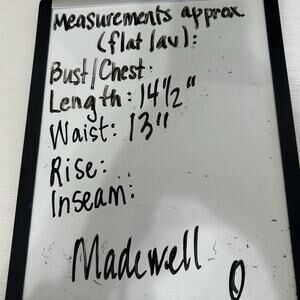 Measurements approx.
(flat lay):
Bust/Chest:
Length: 14 1/2"
Waist: 13"
Rise:
Inseam:
Madewell
0